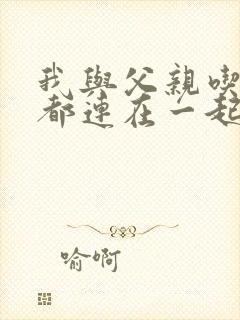 我與父親喫
都連在一起
喻啊